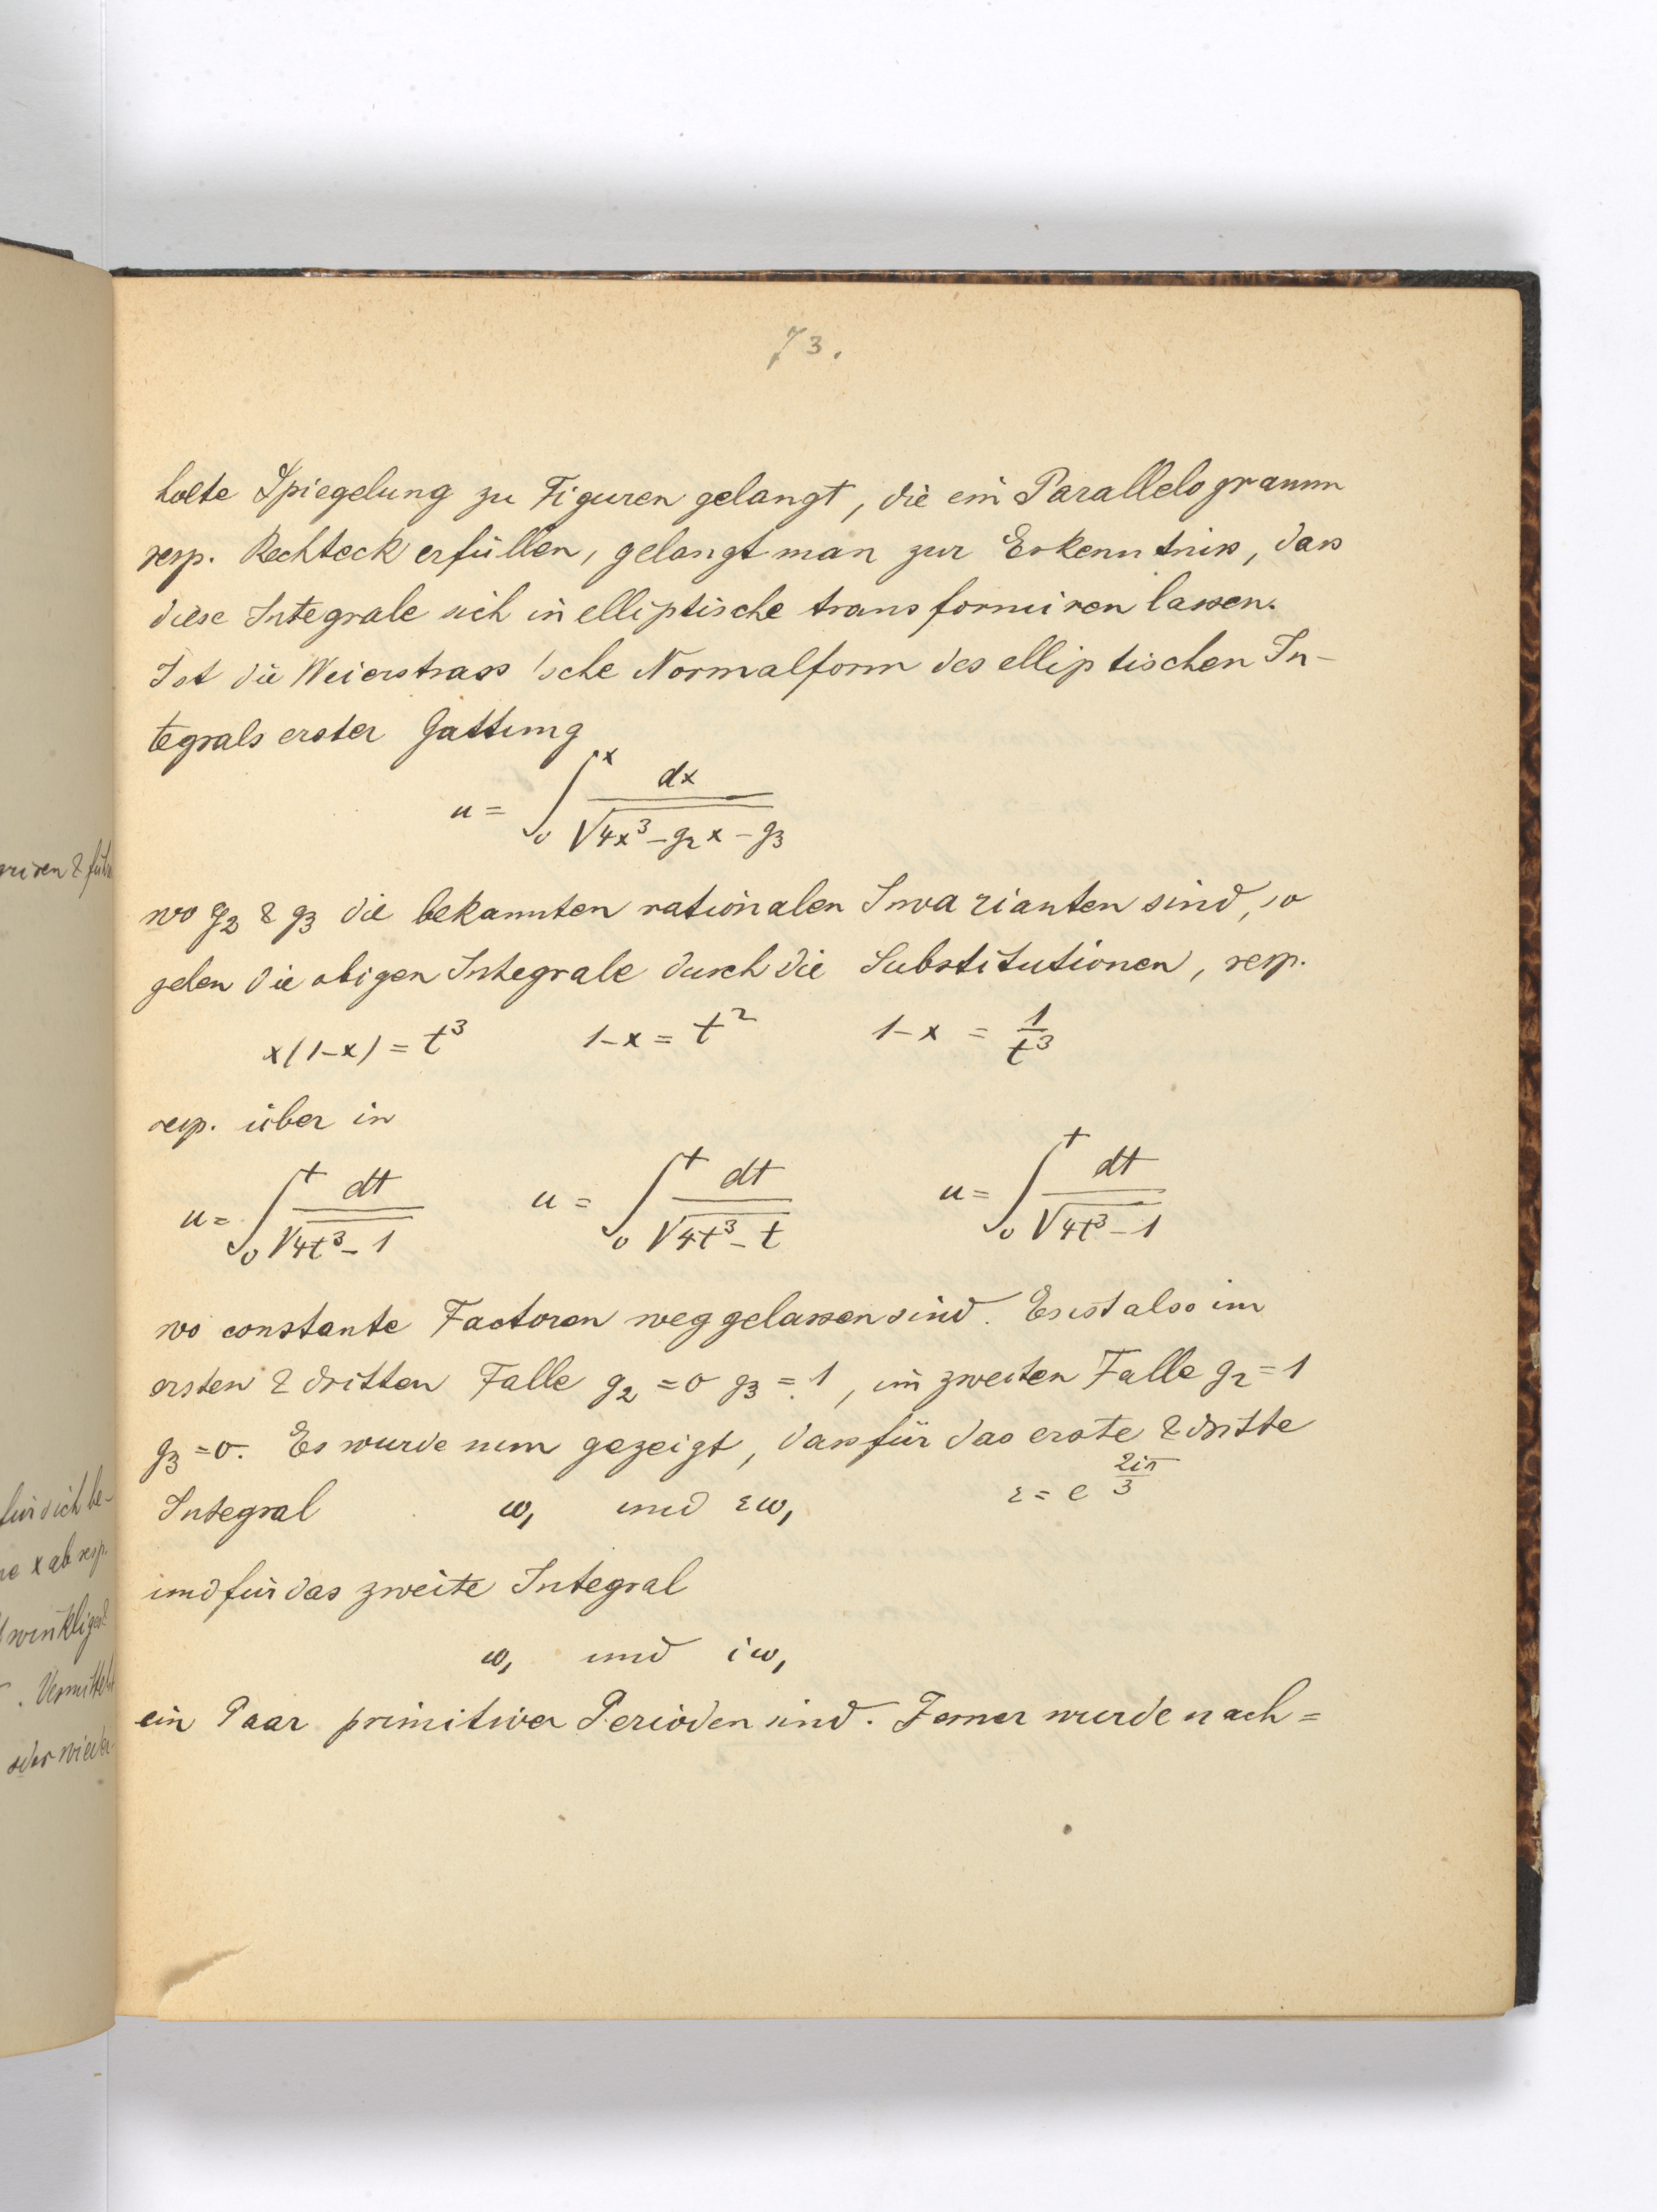 73.
holte Spiegelung zu Figuren gelangt, die ein Parallelogramm
resp. Rechteck erfüllen, gelangt man zur Erkenntniss, dass
diese Integrale sich in elliptische transformiren lassen.
Ist die Weierstrass'sche Normalform des elliptischen In-
tegrals erster Gattung
u = ∫₀ˣ dx / √(4x³ - g₂x - g₃)
wo g₂ & g₃ die bekannten rationalen Invarianten sind, so
gehen die obigen Integrale durch die Substitutionen, resp.
x(1-x) = t³ 1-x = t² 1-x = 1/t³
resp. über in
u = ∫₀ᵗ dt / √(4t³ - 1) u = ∫₀ᵗ dt / √(4t³ - t) u = ∫₀ᵗ dt / √(4t³ - 1)
wo constante Factoren weggelassen sind. Es ist also im
ersten & dritten Falle g₂ = 0 g₃ = 1, im zweiten Falle g₂ = 1
g₃ = 0. Es wurde nun gezeigt, dass für das erste & dritte
Integral ω₁ und εω₁ ε = e^(2iπ/3)
und für das zweite Integral
ω₁ und iω₁
ein Paar primitiver Perioden sind. Ferner wurde nach=
für sich be-
x ab resp.
winklig
. Vermittelst
oder wieder-